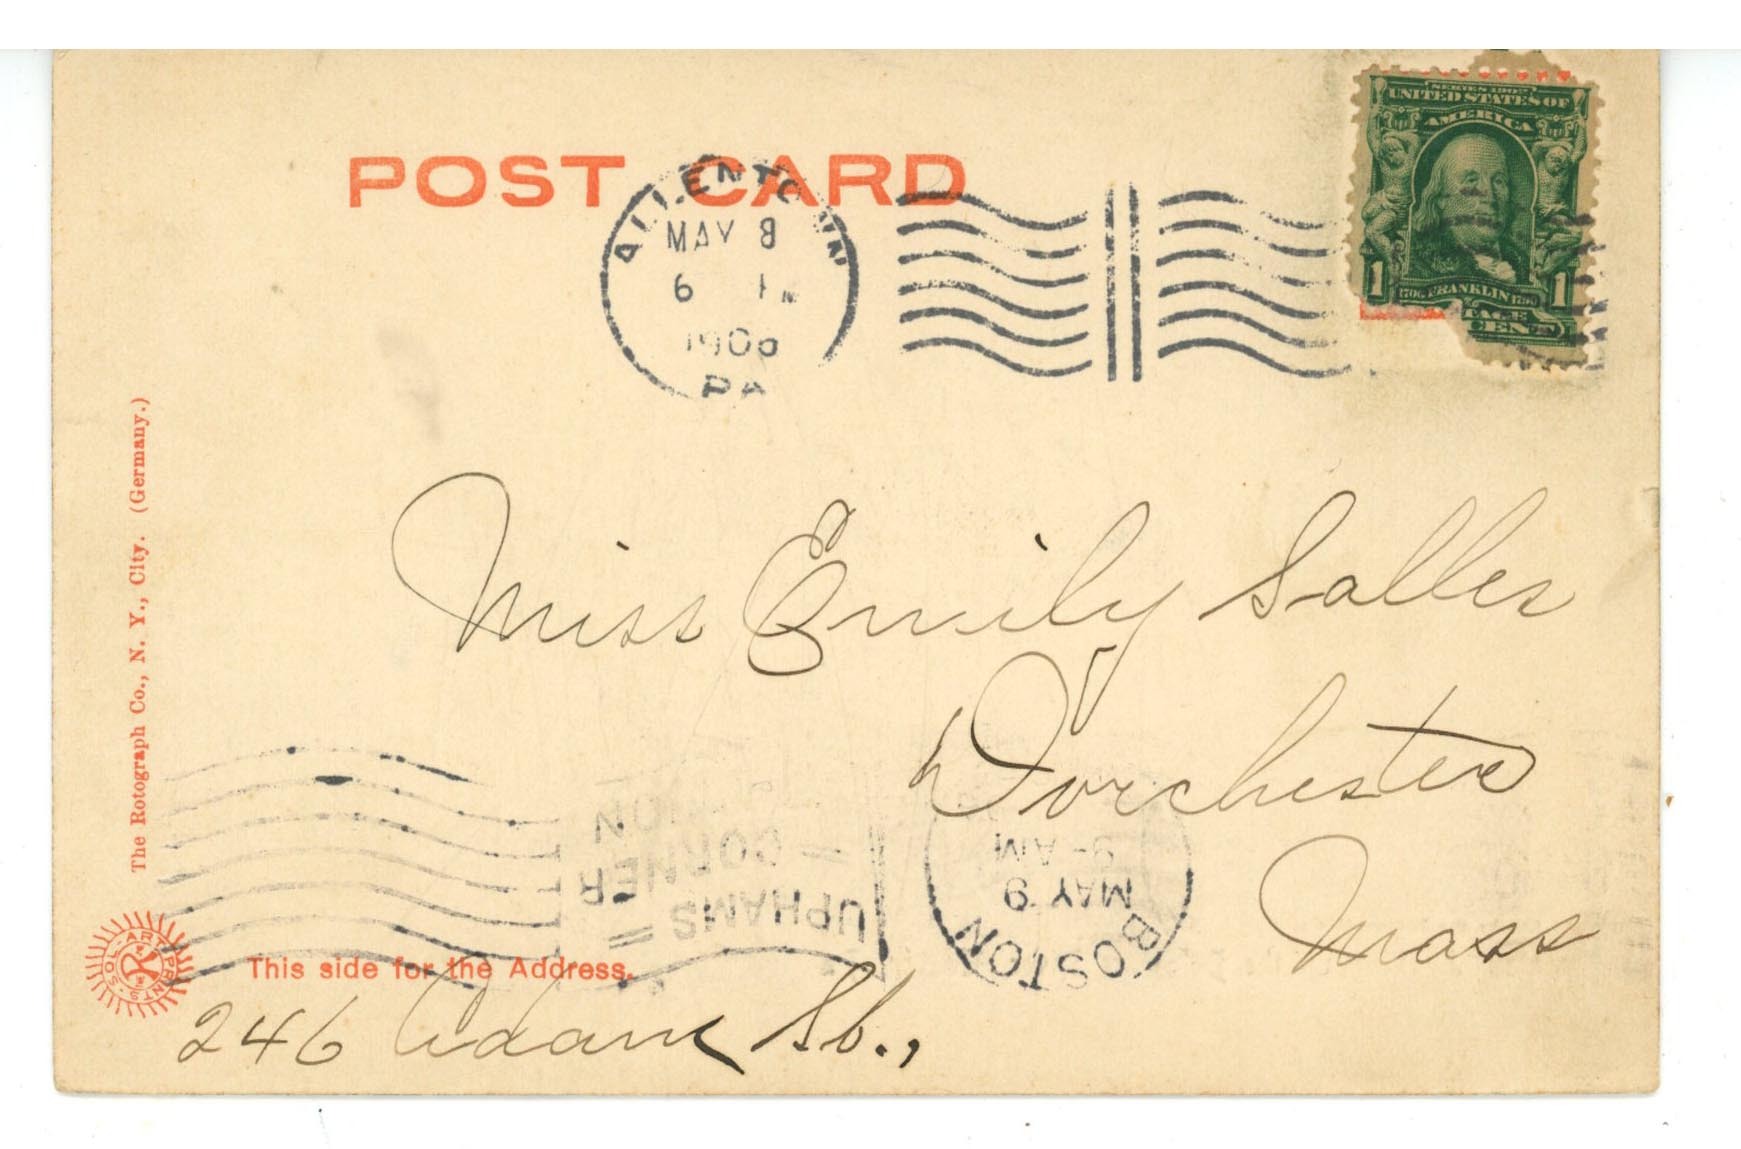 SERIES 1902
UNITED STATES OF
AMERICA
1 1
1706 FRANKLIN 1790
TAGE
CENT
POST CARD
ALLENTOWN
MAY 8
6 PM
PA
The Rotograph Co., N. Y., City. (Germany.)
Miss Emily Salles
Dorchester
Mass
BOSTON
MAY 9
9-AM
UPHAMS
CORNER
SOL-ART PRINTS
R
This side for the Address.
246 Adams St.,